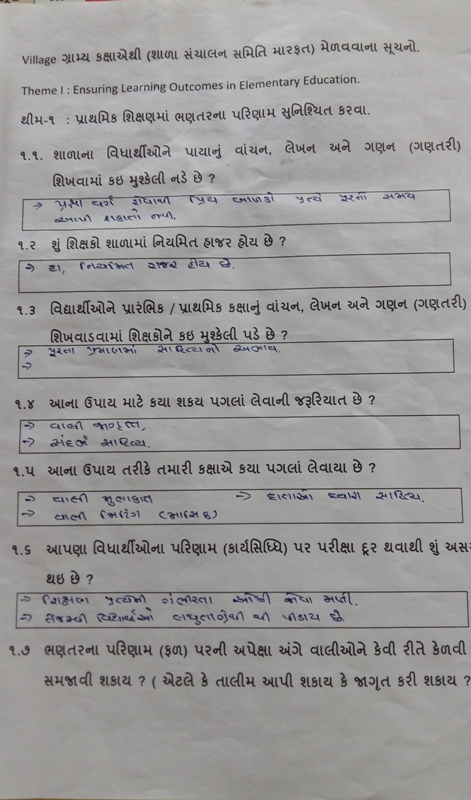 Village ગ્રામ્ય કક્ષાએથી (શાળા સંચાલન સમિતિ મારફત) મેળવવાના સૂચનો.
Theme I : Ensuring Learning Outcomes in Elementary Education.
થીમ-૧ : પ્રાથમિક શિક્ષણમાં ભણતરના પરિણામ સુનિશ્ચિત કરવા.
૧.૧. શાળાના વિધાર્થીઓને પાયાનું વાંચન, લેખન અને ગણન (ગણતરી)
શિખવામાં કઇ મુશ્કેલી નડે છે ?
→ વર્ગ બાળકો પ્રત્યે પુરતો સમય
આપી શકાતો નથી.
૧.૨ શું શિક્ષકો શાળામાં નિયમિત હાજર હોય છે ?
→ હા, નિયમિત હાજર હોય છે.
૧.3 વિદ્યાર્થીઓને પ્રારંભિક / પ્રાથમિક કક્ષાનું વાંચન, લેખન અને ગણન (ગણતરી)
શિખવાડવામાં શિક્ષકોને કઇ મુશ્કેલી પડે છે ?
→ પુરતા પ્રમાણમાં સાહિત્યનો અભાવ.
→
૧.૪ આના ઉપાય માટે કયા શકય પગલાં લેવાની જરૂરિયાત છે ?
→ વાલી જાગૃતિ,
→ સંદર્ભ સાહિત્ય.
૧.૫ આના ઉપાય તરીકે તમારી કક્ષાએ કયા પગલાં લેવાયા છે ?
→ વાલી મુલાકાત → દાતાઓ દ્વારા સાહિત્ય.
→ વાલી મિટિંગ (માસિક)
૧.૬ આપણા વિધાર્થીઓના પરિણામ (કાર્યસિધ્ધિ) પર પરીક્ષા દૂર થવાથી શું અસર
થઇ છે ?
→ શિક્ષણ પ્રત્યેની ગંભીરતા ઓછી જોવા મળી.
→ તેજસ્વી વિદ્યાર્થીઓ લઘુતાગ્રંથી થી પીડાય છે.
૧.૭ ભણતરના પરિણામ (ફળ) પરની અપેક્ષા અંગે વાલીઓને કેવી રીતે કેળવી
સમજાવી શકાય ? ( એટલે કે તાલીમ આપી શકાય કે જાગૃત કરી શકાય ?